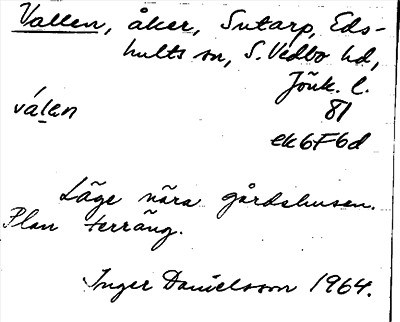 Vallen, åker, Sutarp, Eds-
hults sn, S. Vedbo hd,
Jönk. l.
válen 81
ek6F6d
Läge nära gårdshusen.
Plan terräng.
Inger Danielsson 1964.